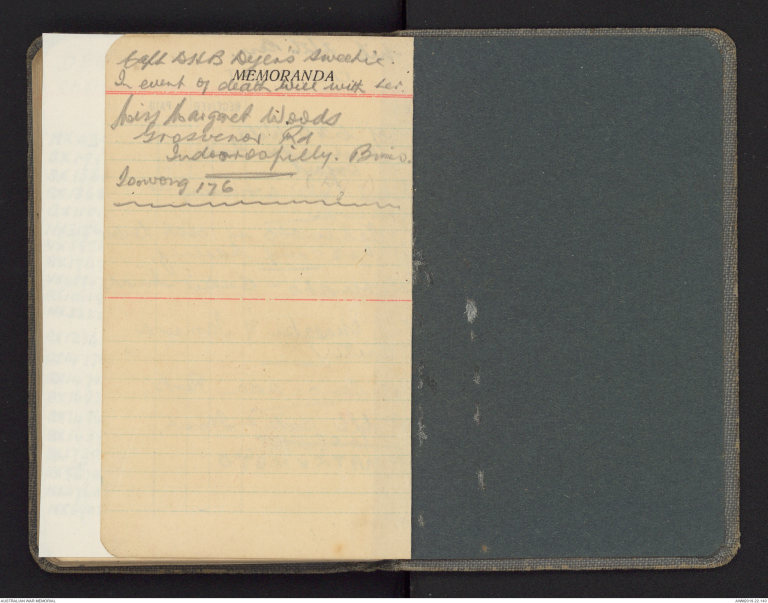 Capt DHB Dyer's Sweetie.
MEMORANDA
In event of death will with her.
Miss Margaret Woods
Grosvenor Rd
Indooroopilly. Bris.
Toowong 176
AUSTRALIAN WAR MEMORIAL